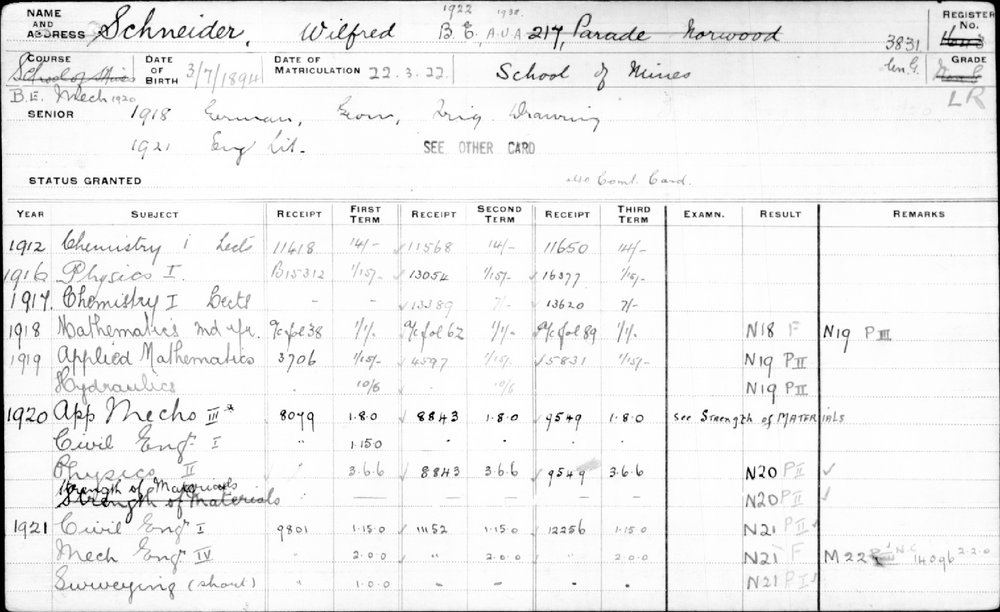 1922 1932
NAME AND ADDRESS Schneider, Wilfred B.E., A.U.A. 217, Parade Norwood REGISTER No. 3831
COURSE School of Mines DATE OF BIRTH 3/7/1894 DATE OF MATRICULATION 22.3.22 School of Mines GRADE
B.E. Mech 1920 LR
SENIOR 1918 German, Geom, Trig. Drawing
1921 Eng Lit. SEE OTHER CARD
STATUS GRANTED Cont. Card.
YEAR SUBJECT RECEIPT FIRST TERM RECEIPT SECOND TERM RECEIPT THIRD TERM EXAMN. RESULT REMARKS
1912 Chemistry I Lects 11618 14/- ✓ 11568 14/- 11650 14/-
1916 Physics I. B15312 1/15/- ✓ 13054 1/15/- ✓ 16377 1/15/-
1917. Chemistry I Lects - - ✓ 13389 7/- ✓ 13620 7/-
1918 Mathematics fol 38 1/1/- fol 62 1/1/- fol 89 1/1/- N18 F N19 P III
1919 Applied Mathematics 3706 1/15/- ✓ 4597 1/15/- ✓ 5831 1/15/- N19 P II
Hydraulics . 10/6 . 10/6 . N19 P II
1920 App Mechs III * 8079 1.8.0 ✓ 8843 1.8.0 ✓ 9549 1.8.0 see Strength of MATERIALS
Civil Engr. I " 1.15.0 - . - .
Physics II " 3.6.6 ✓ 8843 3.6.6 ✓ 9549 3.6.6 N20 P II ✓
Strength of Materials
Strength of Materials " — — — — — N20 P II ✓
1921 Civil Engr. I 9801 1.15.0 ✓ 11152 1.15.0 ✓ 12256 1.15.0 N21 P II ✓
Mech Engr. IV " 2.0.0 " 2.0.0 " 2.0.0 N21 F M22 N.C. 14096 2.2.0
Surveying (short) " 1.0.0 - - - - N21 P I ✓